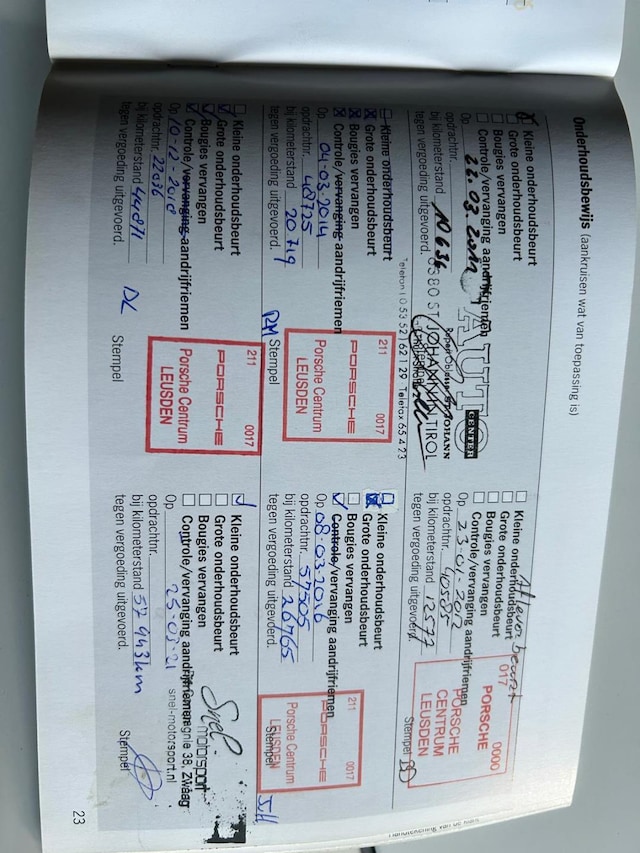 Onderhoudsbewijs (aankruisen wat van toepassing is)
Kleine onderhoudsbeurt
Grote onderhoudsbeurt
Bougies vervangen
Controle/vervanging aandrijfriemen
Op 22.03.2011
opdrachtnr.
bij kilometerstand 10 634
tegen vergoeding uitgevoerd.
AUTO
CENTER
6380 ST. JOHANN TIROL
Telefon 0 53 52 / 62 1 29 Telefax 65 4 23
Afleverbeurt
Kleine onderhoudsbeurt
Grote onderhoudsbeurt
Bougies vervangen
Controle/vervanging aandrijfriemen
Op 23-01-2012
opdrachtnr. 40585
bij kilometerstand 12577
tegen vergoeding uitgevoerd.
017 0000
PORSCHE
PORSCHE
CENTRUM
LEUSDEN
Stempel
Kleine onderhoudsbeurt
Grote onderhoudsbeurt
Bougies vervangen
Controle/vervanging aandrijfriemen
Op 04-03-2014
opdrachtnr. 48725
bij kilometerstand 20719
tegen vergoeding uitgevoerd.
211 0017
PORSCHE
Porsche Centrum
LEUSDEN
Stempel
Kleine onderhoudsbeurt
Grote onderhoudsbeurt
Bougies vervangen
Controle/vervanging aandrijfriemen
Op 08-03-2016
opdrachtnr. 57505
bij kilometerstand 26765
tegen vergoeding uitgevoerd.
211 0017
PORSCHE
Porsche Centrum
LEUSDEN
Stempel
Kleine onderhoudsbeurt
Grote onderhoudsbeurt
Bougies vervangen
Controle/vervanging aandrijfriemen
Op 10-12-2018
opdrachtnr. 22036
bij kilometerstand 44871
tegen vergoeding uitgevoerd.
DK
211 0017
PORSCHE
Porsche Centrum
LEUSDEN
Stempel
Kleine onderhoudsbeurt
Grote onderhoudsbeurt
Bougies vervangen
Controle/vervanging aandrijfriemen
Op 25-03-21
opdrachtnr.
bij kilometerstand 57943km
tegen vergoeding uitgevoerd.
Snel
motorsport
38, Zwaag
snel-motorsport.nl
Stempel
23